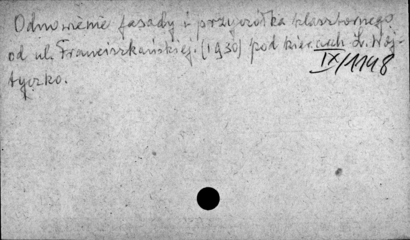 Odnowienie fasady i przyczółka klasztornego
od ul. Franciszkańskiej. (1930) pod kier. arch. L. Woj-
tyczko.
IX/1148